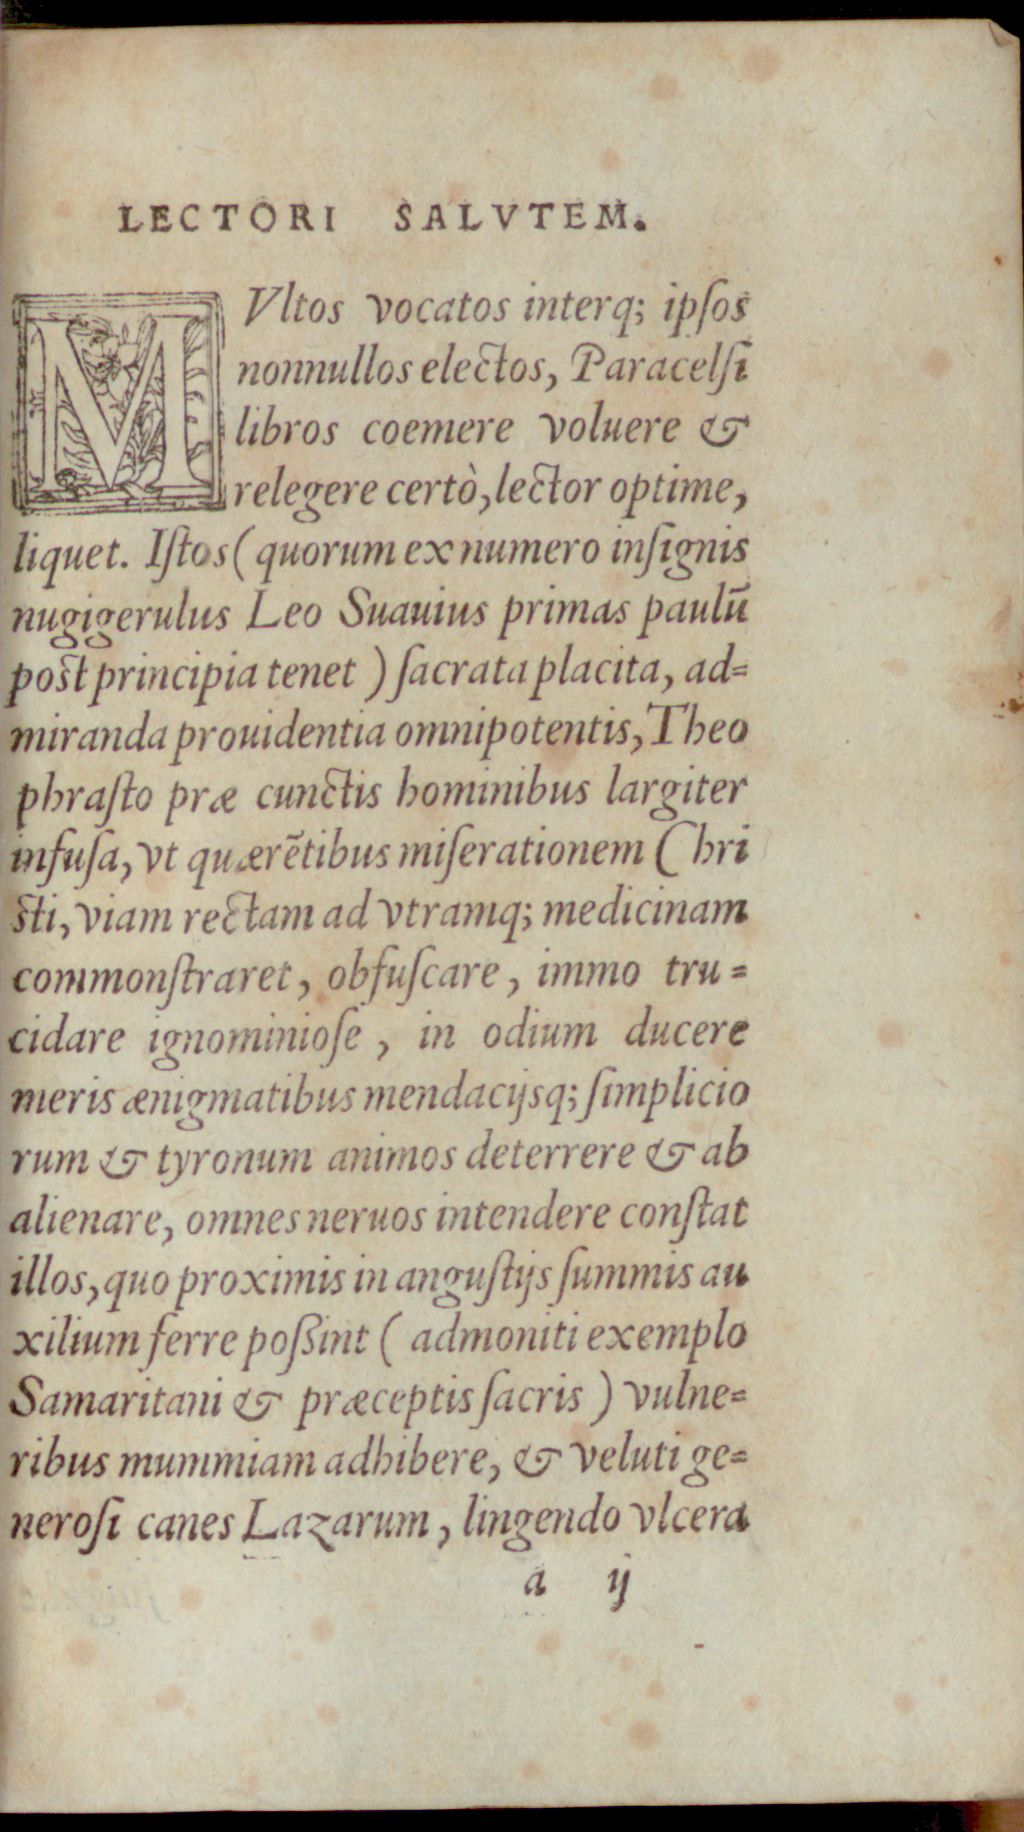 LECTORI SALVTEM.
MVltos vocatos interq; ipſos
nonnullos electos, Paracelſi
libros coemere voluere &
relegere certò, lector optime,
liquet. Iſtos (quorum ex numero inſignis
nugigerulus Leo Suauius primas paulū
poſt principia tenet) ſacrata placita, ad=
miranda prouidentia omnipotentis, Theo
phraſto præ cunctis hominibus largiter
infuſa, vt quærētibus miſerationem Chri
ſti, viam rectam ad vtramq; medicinam
commonſtraret, obfuſcare, immo tru=
cidare ignominioſe, in odium ducere
meris ænigmatibus mendacijsq; ſimplicio
rum & tyronum animos deterrere & ab
alienare, omnes neruos intendere conſtat
illos, quo proximis in anguſtijs ſummis au
xilium ferre poßint (admoniti exemplo
Samaritani & præceptis ſacris) vulne=
ribus mummiam adhibere, & veluti ge=
neroſi canes Lazarum, lingendo vlcera
a ij